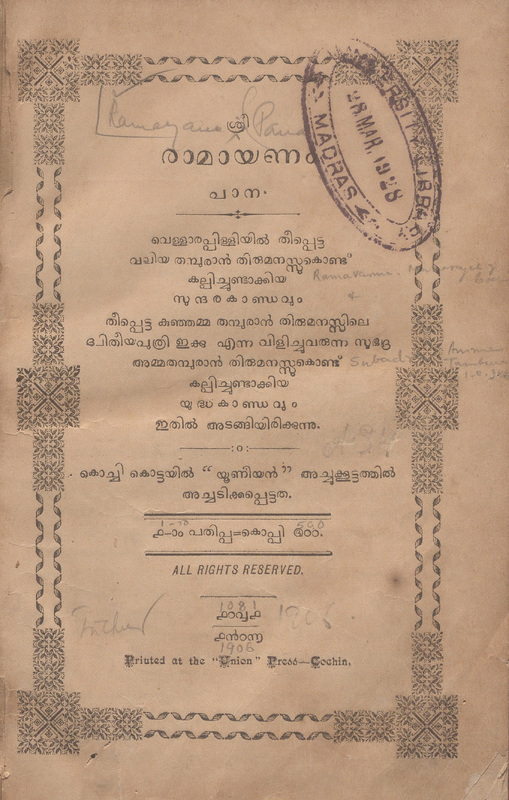 ശ്രീ
[Ramayana Pana
രാമായണം
പാന.
വെള്ളാരപ്പിള്ളിയിൽ തീപ്പെട്ട
വലിയ തമ്പുരാൻ തിരുമനസ്സുകൊണ്ട്
കല്പിച്ചുണ്ടാക്കിയ
Ramavarma,
സുന്ദരകാണ്ഡവും
&
തീപ്പെട്ട കുഞ്ഞമ്മ തമ്പുരാൻ തിരുമനസ്സിലെ
ദ്വിതീയപുത്രി ഇക്കു എന്നു വിളിച്ചുവരുന്ന സുഭദ്ര
അമ്മതമ്പുരാൻ തിരുമനസ്സുകൊണ്ട്
Subadra Amma
Tamburan
കല്പിച്ചുണ്ടാക്കിയ
യുദ്ധകാണ്ഡവും
ഇതിൽ അടങ്ങിയിരിക്കുന്നു.
:o:
കൊച്ചി കൊട്ടയിൽ "യൂണിയൻ" അച്ചുക്കൂട്ടത്തിൽ
അച്ചടിക്കപ്പെട്ടത.
൧-ാം പതിപ്പു=കൊപ്പി ൫൦൦.
500
ALL RIGHTS RESERVED.
1081
൧൦൮൧
1906
൧൯൦൬
1906
Printed at the "Union" Press—Cochin.
UNIVERSITY LIBRARY
MADRAS
28 MAR. 1928